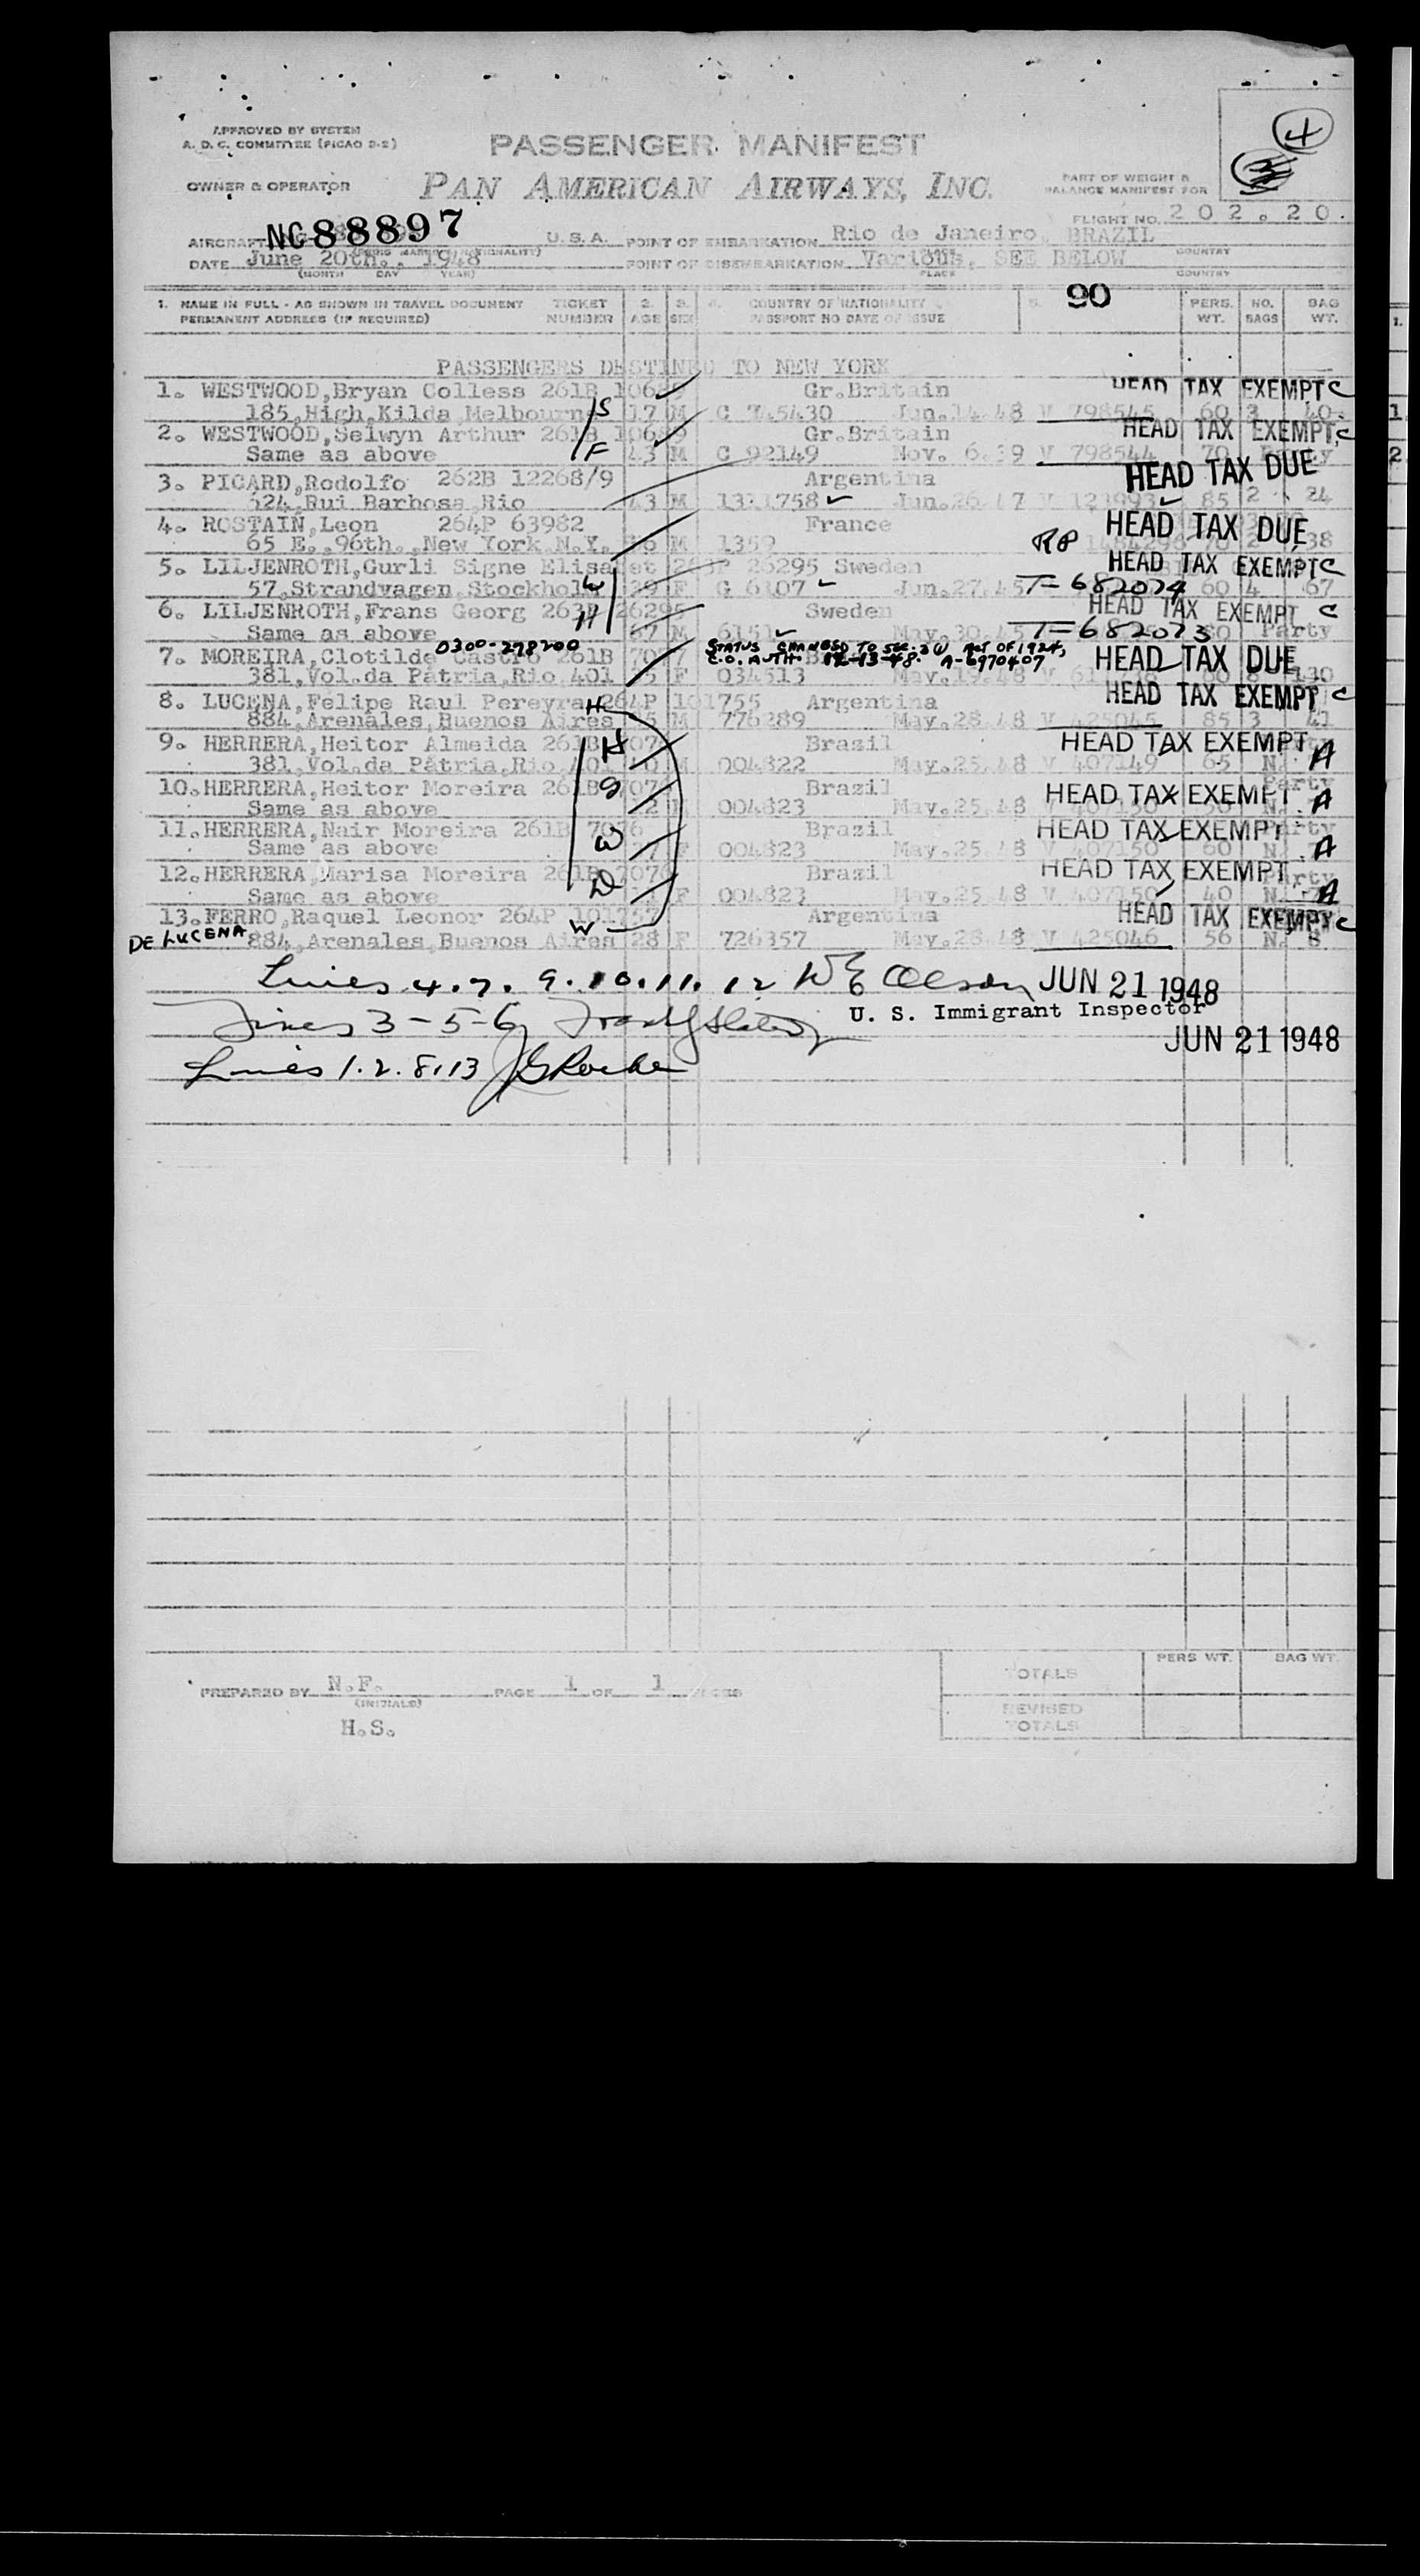 APPROVED BY SYSTEM
A. D. C. COMMITTEE (PICAO 2-2)
PASSENGER MANIFEST
4
OWNER & OPERATOR PAN AMERICAN AIRWAYS, INC.
PART OF WEIGHT &
BALANCE MANIFEST FOR
FLIGHT NO. 202.20.
AIRCRAFT NC88897 U.S.A. POINT OF EMBARKATION Rio de Janeiro, BRAZIL
DATE June 20th., 1948 POINT OF DISEMBARKATION Various, SEE BELOW
(MONTH DAY YEAR) PLACE COUNTRY
90
1. NAME IN FULL - AS SHOWN IN TRAVEL DOCUMENT TICKET 2. 3. 4. COUNTRY OF NATIONALITY 5. PERS. NO. BAG
PERMANENT ADDRESS (IF REQUIRED) NUMBER AGE SEX PASSPORT NO DATE OF ISSUE WT. BAGS WT.
PASSENGERS DESTINED TO NEW YORK
1. WESTWOOD,Bryan Colless 261B Gr.Britain HEAD TAX EXEMPT C
185,High,Kilda Melbourne S 17 M C 745430 Jun.14.48 V 798545 60 3 40
2. WESTWOOD,Selwyn Arthur 261B 10689 Gr.Britain HEAD TAX EXEMPT C
Same as above F 43 M C 92149 Nov. 6.39 V 798544 70
3. PICARD,Rodolfo 262B 12268/9 Argentina HEAD TAX DUE
624,Rui Barbosa,Rio 43 M Jun.26.47 V 85 2 24
4. ROSTAIN,Leon 264P 63982 France HEAD TAX DUE
65 E.,96th.,New York N.Y. M 1359 RP 38
5. LILJENROTH,Gurli Signe Elisabet 263P 26295 Sweden HEAD TAX EXEMPT C
57,Strandvagen,Stockholm W 39 F G 6107 Jun.27.45 T-682074 60 4 67
6. LILJENROTH,Frans Georg 263P 26295 Sweden HEAD TAX EXEMPT C
Same as above H M May.30.45 T-682073 Party
0300-278200 STATUS CHANGED TO SEC. 3(1) ACT OF 1924,
7. MOREIRA,Clotilde Castro 261B C.O. AUTH. 12-13-48. A-6970407 HEAD TAX DUE
381,Vol.da Pátria,Rio,401 F 034513 May.19.48 V 130
8. LUCENA,Felipe Raul Pereyra 264P 101755 H Argentina HEAD TAX EXEMPT C
884,Arenales,Buenos Aires M 776289 May.28.48 V 425045 85 3 41
9. HERRERA,Heitor Almeida 261B H Brazil HEAD TAX EXEMPT A
381,Vol.da Pátria,Rio 004822 May.25.48 V 407149 65 N.
10.HERRERA,Heitor Moreira 261B S Brazil HEAD TAX EXEMPT A
Same as above 004823 May.25.48 Party
11.HERRERA,Nair Moreira 261B 7076 Brazil HEAD TAX EXEMPT A
Same as above W F 004823 May.25.48 V 407150 60 N.
12.HERRERA,Marisa Moreira 261B Brazil HEAD TAX EXEMPT A
Same as above D F 004823 May.25.48 V 407150 40 N.
13.FERRO,Raquel Leonor 264P 101757 Argentina HEAD TAX EXEMPT C
DE LUCENA 884,Arenales,Buenos Aires W 28 F 726357 May.28.48 V 425046 56 N. 8
Lines 4.7. 9.10.11.12 W E Olson JUN 21 1948
U. S. Immigrant Inspector
Lines 3-5-6
JUN 21 1948
Lines 1.2.8.13
PERS WT. BAG WT.
TOTALS
PREPARED BY N.F. PAGE 1 OF 1 PAGES
(INITIALS)
REVISED
TOTALS
H.S.